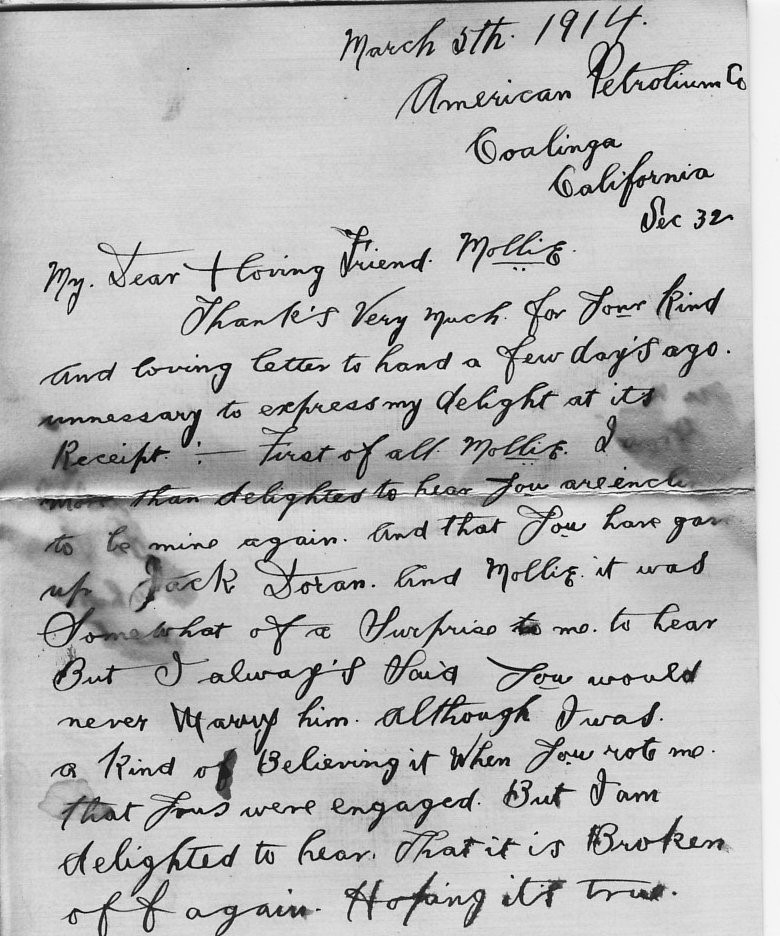 March 5th. 1914.
American Petrolium Co
Coalinga
California
Sec 32
My. Dear + loving Friend. Mollie.
Thank's Very much. for Your kind
and loving letter to hand a few day's ago.
unnessary to express my delight at its
Receipt. :— First of all. Mollie. I
more than delighted to hear You are
to be mine again. And that You have
up Jack Doran. And Mollie. it was
Somewhat of a Surprise to me. to hear
But I alway's Said You would
never Marry him. Although I was.
a kind of Believing it When You rote me.
that Yous were engaged. But I am
delighted to hear. That it is Broken
off again. Hoping it's true.